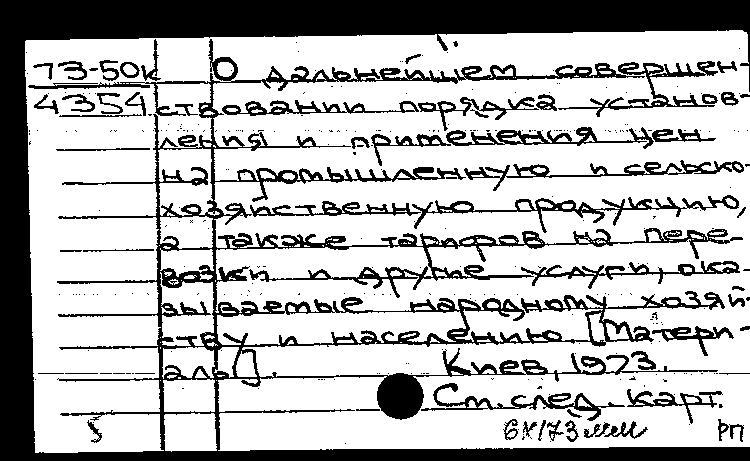 1.
73-50к О дальнейшем совершен-
4354 ствовании порядка установ-
ления и применения цен
на промышленную и сельско-
хозяйственную продукцию,
а также тарифов на пере-
возки и другие услуги, ока-
зываемые народному хозяй-
ству и населению. [Матери-
алы].
Киев, 1973.
См. след. карт.
5 6X173 РП